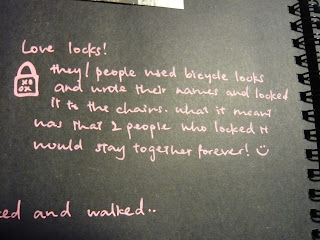 Love locks!
they/ people used bicycle locks
and wrote their names and locked
it to the chains. what it meant
was that 2 people who locked it
would stay together forever! ☺
XO
OX
ked and walked..